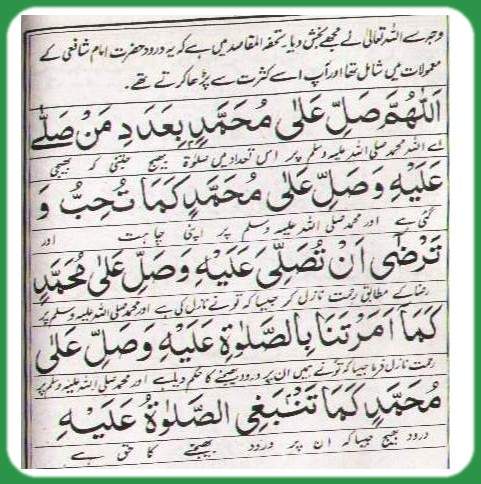 وجہ سے اللہ تعالیٰ نے مجھے بخش دیا۔ تحفۃ المقاصد میں ہے کہ یہ درود حضرت امام شافعی کے
معمولات میں شامل تھا اور آپ اسے کثرت سے پڑھا کرتے تھے۔
اَللّٰهُمَّ صَلِّ عَلٰى مُحَمَّدٍ بِعَدَدِ مَنْ صَلّٰى
اے اللہ محمد صلی اللہ علیہ وسلم پر اس تعداد میں صلوٰۃ بھیج جتنی کہ بھیجی
عَلَيْهِ وَصَلِّ عَلٰى مُحَمَّدٍ كَمَا تُحِبُّ وَ
گئی ہے اور محمد صلی اللہ علیہ وسلم پر اپنی چاہت اور
تَرْضٰى اَنْ تُصَلِّىَ عَلَيْهِ وَصَلِّ عَلٰى مُحَمَّدٍ
رضا کے مطابق رحمت نازل کر جیسا کہ تو نے نازل کی ہے اور محمد صلی اللہ علیہ وسلم پر
كَمَا اَمَرْتَنَا بِالصَّلٰوةِ عَلَيْهِ وَصَلِّ عَلٰى
رحمت نازل فرما جیسا کہ تو نے ہمیں ان پر درود بھیجنے کا حکم دیا ہے اور محمد صلی اللہ علیہ وسلم پر
مُحَمَّدٍ كَمَا تَنْۢبَغِى الصَّلٰوةُ عَلَيْهِ
درود بھیج جیسا کہ ان پر درود بھیجنے کا حق ہے